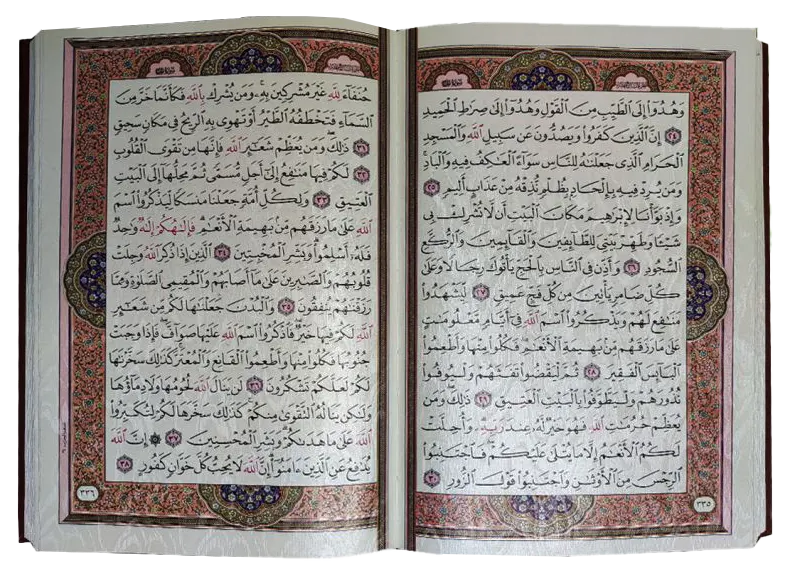 وَهُدُوٓا۟ إِلَى ٱلطَّيِّبِ مِنَ ٱلْقَوْلِ وَهُدُوٓا۟ إِلَىٰ صِرَٰطِ ٱلْحَمِيدِ
٢٤ إِنَّ ٱلَّذِينَ كَفَرُوا۟ وَيَصُدُّونَ عَن سَبِيلِ ٱللَّهِ وَٱلْمَسْجِدِ
ٱلْحَرَامِ ٱلَّذِى جَعَلْنَٰهُ لِلنَّاسِ سَوَآءً ٱلْعَٰكِفُ فِيهِ وَٱلْبَادِ
وَمَن يُرِدْ فِيهِ بِإِلْحَادٍۭ بِظُلْمٍ نُّذِقْهُ مِنْ عَذَابٍ أَلِيمٍ ٢٥
وَإِذْ بَوَّأْنَا لِإِبْرَٰهِيمَ مَكَانَ ٱلْبَيْتِ أَن لَّا تُشْرِكْ بِى
شَيْـًٔا وَطَهِّرْ بَيْتِىَ لِلطَّآئِفِينَ وَٱلْقَآئِمِينَ وَٱلرُّكَّعِ
ٱلسُّجُودِ ٢٦ وَأَذِّن فِى ٱلنَّاسِ بِٱلْحَجِّ يَأْتُوكَ رِجَالًا وَعَلَىٰ
كُلِّ ضَامِرٍ يَأْتِينَ مِن كُلِّ فَجٍّ عَمِيقٍ ٢٧ لِّيَشْهَدُوا۟
مَنَٰفِعَ لَهُمْ وَيَذْكُرُوا۟ ٱسْمَ ٱللَّهِ فِىٓ أَيَّامٍ مَّعْلُومَٰتٍ
عَلَىٰ مَا رَزَقَهُم مِّنۢ بَهِيمَةِ ٱلْأَنْعَٰمِ فَكُلُوا۟ مِنْهَا وَأَطْعِمُوا۟
ٱلْبَآئِسَ ٱلْفَقِيرَ ٢٨ ثُمَّ لْيَقْضُوا۟ تَفَثَهُمْ وَلْيُوفُوا۟
نُذُورَهُمْ وَلْيَطَّوَّفُوا۟ بِٱلْبَيْتِ ٱلْعَتِيقِ ٢٩ ذَٰلِكَ وَمَن
يُعَظِّمْ حُرُمَٰتِ ٱللَّهِ فَهُوَ خَيْرٌ لَّهُۥ عِندَ رَبِّهِۦ وَأُحِلَّتْ
لَكُمُ ٱلْأَنْعَٰمُ إِلَّا مَا يُتْلَىٰ عَلَيْكُمْ فَٱجْتَنِبُوا۟
ٱلرِّجْسَ مِنَ ٱلْأَوْثَٰنِ وَٱجْتَنِبُوا۟ قَوْلَ ٱلزُّورِ ٣٠
٣٣٥
حُنَفَآءَ لِلَّهِ غَيْرَ مُشْرِكِينَ بِهِۦ وَمَن يُشْرِكْ بِٱللَّهِ فَكَأَنَّمَا خَرَّ مِنَ
ٱلسَّمَآءِ فَتَخْطَفُهُ ٱلطَّيْرُ أَوْ تَهْوِى بِهِ ٱلرِّيحُ فِى مَكَانٍ سَحِيقٍ
٣١ ذَٰلِكَ وَمَن يُعَظِّمْ شَعَٰٓئِرَ ٱللَّهِ فَإِنَّهَا مِن تَقْوَى ٱلْقُلُوبِ
٣٢ لَكُمْ فِيهَا مَنَٰفِعُ إِلَىٰٓ أَجَلٍ مُّسَمًّى ثُمَّ مَحِلُّهَآ إِلَى ٱلْبَيْتِ
ٱلْعَتِيقِ ٣٣ وَلِكُلِّ أُمَّةٍ جَعَلْنَا مَنسَكًا لِّيَذْكُرُوا۟ ٱسْمَ
ٱللَّهِ عَلَىٰ مَا رَزَقَهُم مِّنۢ بَهِيمَةِ ٱلْأَنْعَٰمِ فَإِلَٰهُكُمْ إِلَٰهٌ وَٰحِدٌ
فَلَهُۥٓ أَسْلِمُوا۟ وَبَشِّرِ ٱلْمُخْبِتِينَ ٣٤ ٱلَّذِينَ إِذَا ذُكِرَ ٱللَّهُ وَجِلَتْ
قُلُوبُهُمْ وَٱلصَّٰبِرِينَ عَلَىٰ مَآ أَصَابَهُمْ وَٱلْمُقِيمِى ٱلصَّلَوٰةِ وَمِمَّا
رَزَقْنَٰهُمْ يُنفِقُونَ ٣٥ وَٱلْبُدْنَ جَعَلْنَٰهَا لَكُم مِّن شَعَٰٓئِرِ
ٱللَّهِ لَكُمْ فِيهَا خَيْرٌ فَٱذْكُرُوا۟ ٱسْمَ ٱللَّهِ عَلَيْهَا صَوَآفَّ فَإِذَا وَجَبَتْ
جُنُوبُهَا فَكُلُوا۟ مِنْهَا وَأَطْعِمُوا۟ ٱلْقَانِعَ وَٱلْمُعْتَرَّ كَذَٰلِكَ سَخَّرْنَٰهَا
لَكُمْ لَعَلَّكُمْ تَشْكُرُونَ ٣٦ لَن يَنَالَ ٱللَّهَ لُحُومُهَا وَلَا دِمَآؤُهَا
وَلَٰكِن يَنَالُهُ ٱلتَّقْوَىٰ مِنكُمْ كَذَٰلِكَ سَخَّرَهَا لَكُمْ لِتُكَبِّرُوا۟
ٱللَّهَ عَلَىٰ مَا هَدَىٰكُمْ وَبَشِّرِ ٱلْمُحْسِنِينَ ٣٧ ۞ إِنَّ ٱللَّهَ
يُدَٰفِعُ عَنِ ٱلَّذِينَ ءَامَنُوٓا۟ إِنَّ ٱللَّهَ لَا يُحِبُّ كُلَّ خَوَّانٍ كَفُورٍ ٣٨
٣٣٦